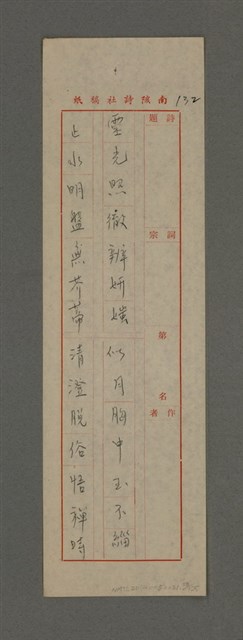 南陔詩社稿紙
132
詩題
詞宗
第
名
作者
靈光照徹辨妍媸 似月胸中玉不緇
止水明盤無芥蒂 清澄脫俗悟禪時